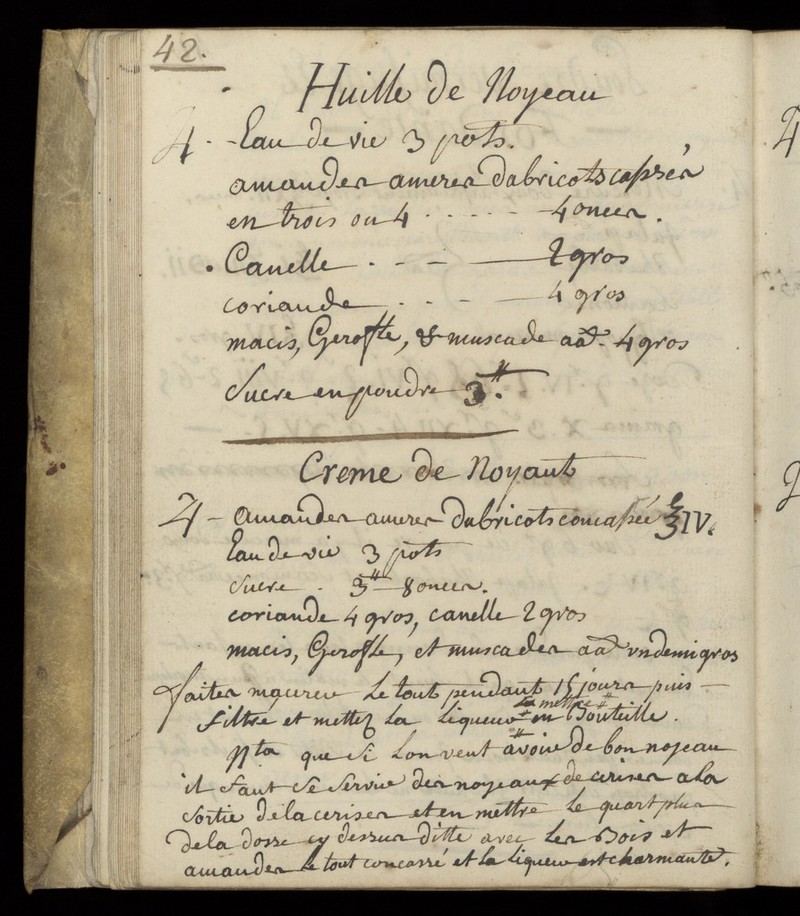 42.
Huille de Noyeau
♃ - Eau de vie 3 pots.
amandes ameres dabricots cassées
en trois ou 4 - - - - - 4 onces.
Canelle - - - 2 gros
coriande - - - 4 gros
macis, Gerofle, & muscade aa 4 gros
Sucre en poudre 3 ℔.
Creme de Noyaut
♃ - amandes ameres dabricots concassée ℥ IV.
Eau de vie 3 pots
Sucre . 3 ℔ 8 onces.
coriande 4 gros, canelle 2 gros
macis, Gerofle, et muscades aa un demi gros
faites macerer le tout pendant 15 jours puis
filtré et mettez la liqueur la mettre en Bouteille.
Nta que si lon veut avoir de bon noyeau
il faut se servir des noyeaux de cerises a la
sortie de la cerises et en mettre le quart plus
de la dosse cy dessus ditte avec les Bois et
amandes le tout concassé et la liqueur est charmante.
4